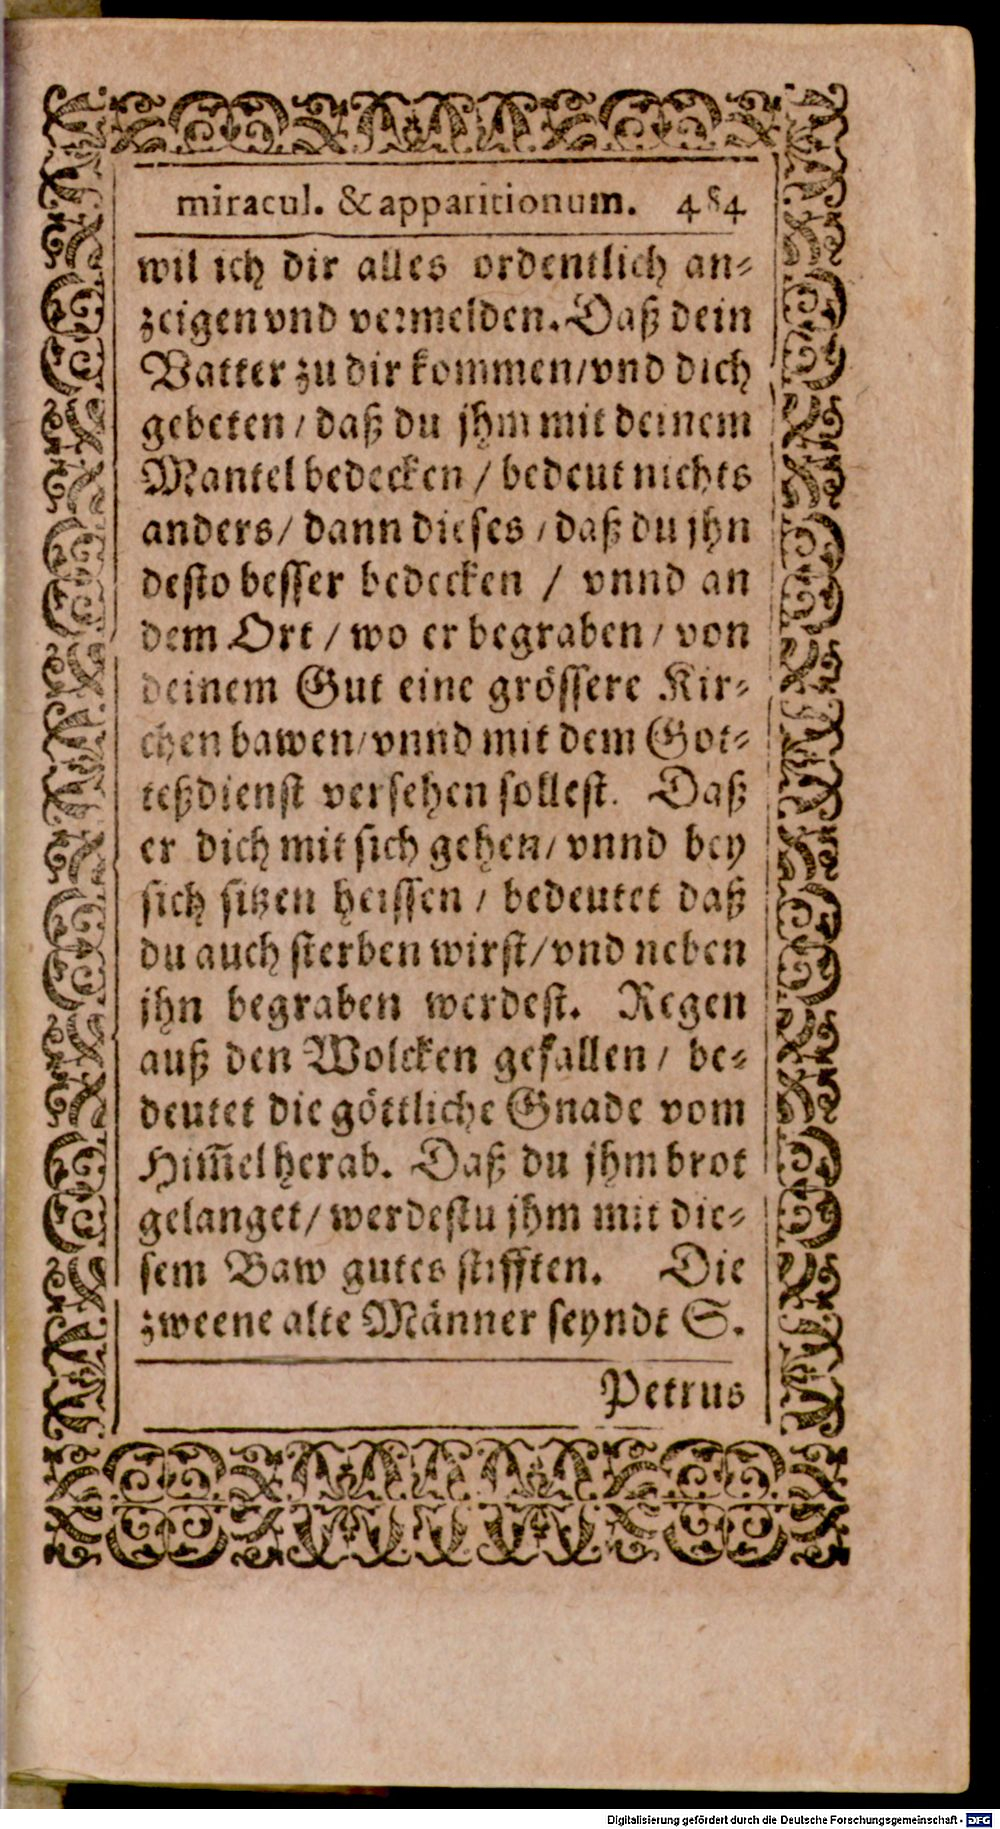 miracul. & apparitionum. 484
wil ich dir alles ordentlich an-
zeigen vnd vermelden. Daß dein
Vatter zu dir kommen/ vnd dich
gebeten / daß du jhm mit deinem
Mantel bedecken / bedeut nichts
anders/ dann dieses / daß du jhn
desto besser bedecken / vnnd an
dem Ort / wo er begraben / von
deinem Gut eine grössere Kir-
chen bawen/ vnnd mit dem Got-
teßdienst versehen sollest. Daß
er dich mit sich gehen/ vnnd bey
sich sitzen heissen / bedeutet daß
du auch sterben wirst/ vnd neben
jhn begraben werdest. Regen
auß den Wolcken gefallen / be-
deutet die göttliche Gnade vom
Him̃el herab. Daß du jhm brot
gelanget/ werdestu jhm mit die-
sem Baw gutes stifften. Die
zweene alte Männer seyndt S.
Petrus
Digitalisierung gefördert durch die Deutsche Forschungsgemeinschaft - DFG